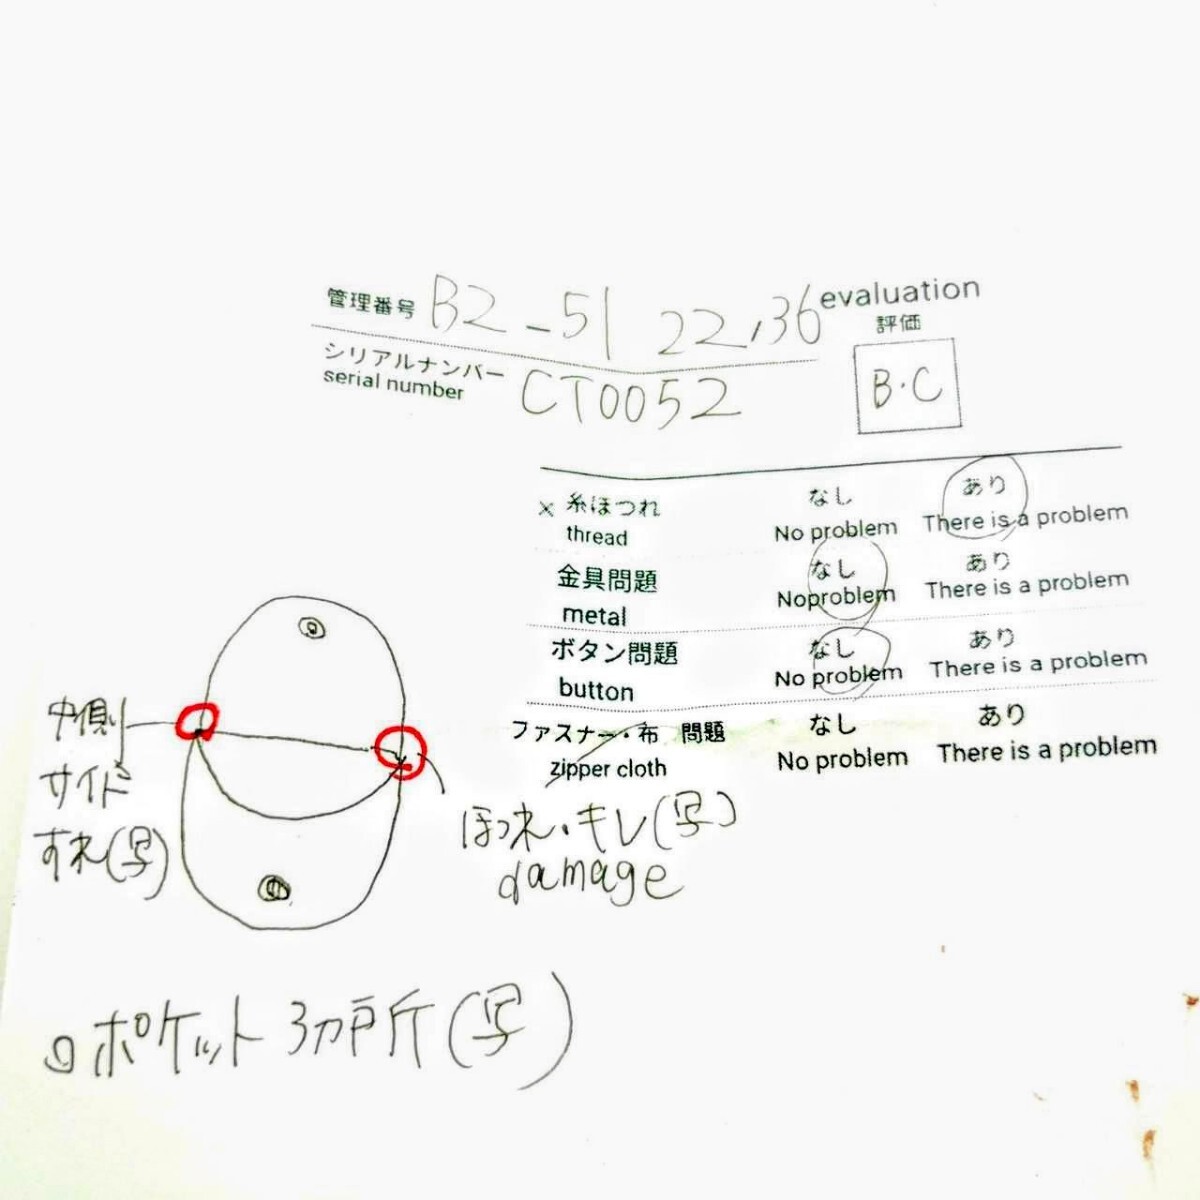 管理番号 B2-51 22,36
シリアルナンバー
serial number CT0052
evaluation
評価
B・C
× 糸ほつれ なし あり
thread No problem There is a problem
金具問題 なし あり
metal Noproblem There is a problem
ボタン問題 なし あり
button No problem There is a problem
ファスナー・布 問題 なし あり
zipper cloth No problem There is a problem
中側
サイド
すれ(写)
ほつれ・キレ(写)
damage
ポケット 3カ戸斤(写)